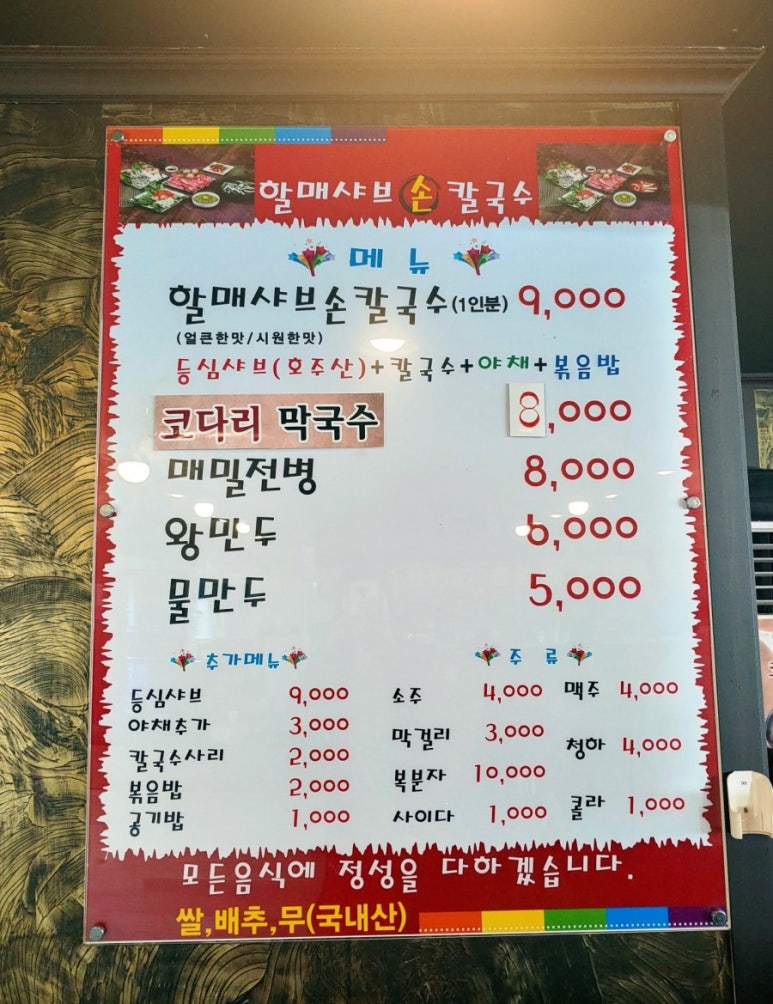 할매샤브손칼국수
메 뉴
할매샤브손칼국수(1인분) 9,000
(얼큰한맛/시원한맛)
등심샤브(호주산)+칼국수+야채+볶음밥
코다리 막국수 8,000
매밀전병 8,000
왕만두 6,000
물만두 5,000
추가메뉴
등심샤브 9,000
야채추가 3,000
칼국수사리 2,000
볶음밥 2,000
공기밥 1,000
주 류
소주 4,000 맥주 4,000
막걸리 3,000 청하 4,000
복분자 10,000
사이다 1,000 콜라 1,000
모든음식에 정성을 다하겠습니다.
쌀,배추,무(국내산)